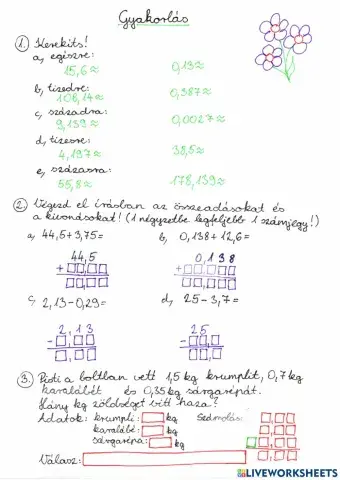 Gyakorlás
1. Kerekíts!
a, egészre:
15,6≈ 0,13≈
b, tizedre:
108,14≈ 0,387≈
c, századra:
9,139≈ 0,0027≈
d, tízesre:
4,197≈ 38,5≈
e, százasra:
55,8≈ 178,139≈
2. Végezd el írásban az összeadásokat és
a kivonásokat! (1 négyzetbe legfeljebb 1 számjegy!)
a, 44,5+3,75= b, 0,138+12,6=
44,5 0,138
+ , + ,
, ,
c, 2,13-0,29= d, 25-3,7=
2,13 25
- , - ,
, ,
3. Pisti a boltban vett 1,5 kg krumplit, 0,7 kg
karalábét és 0,35 kg sárgarépát.
Hány kg zöldséget vitt haza?
Adatok: krumpli: kg Számolás: ,
karalábé: kg ,
sárgarépa: kg ,
Válasz: ,
LIVEWORKSHEETS